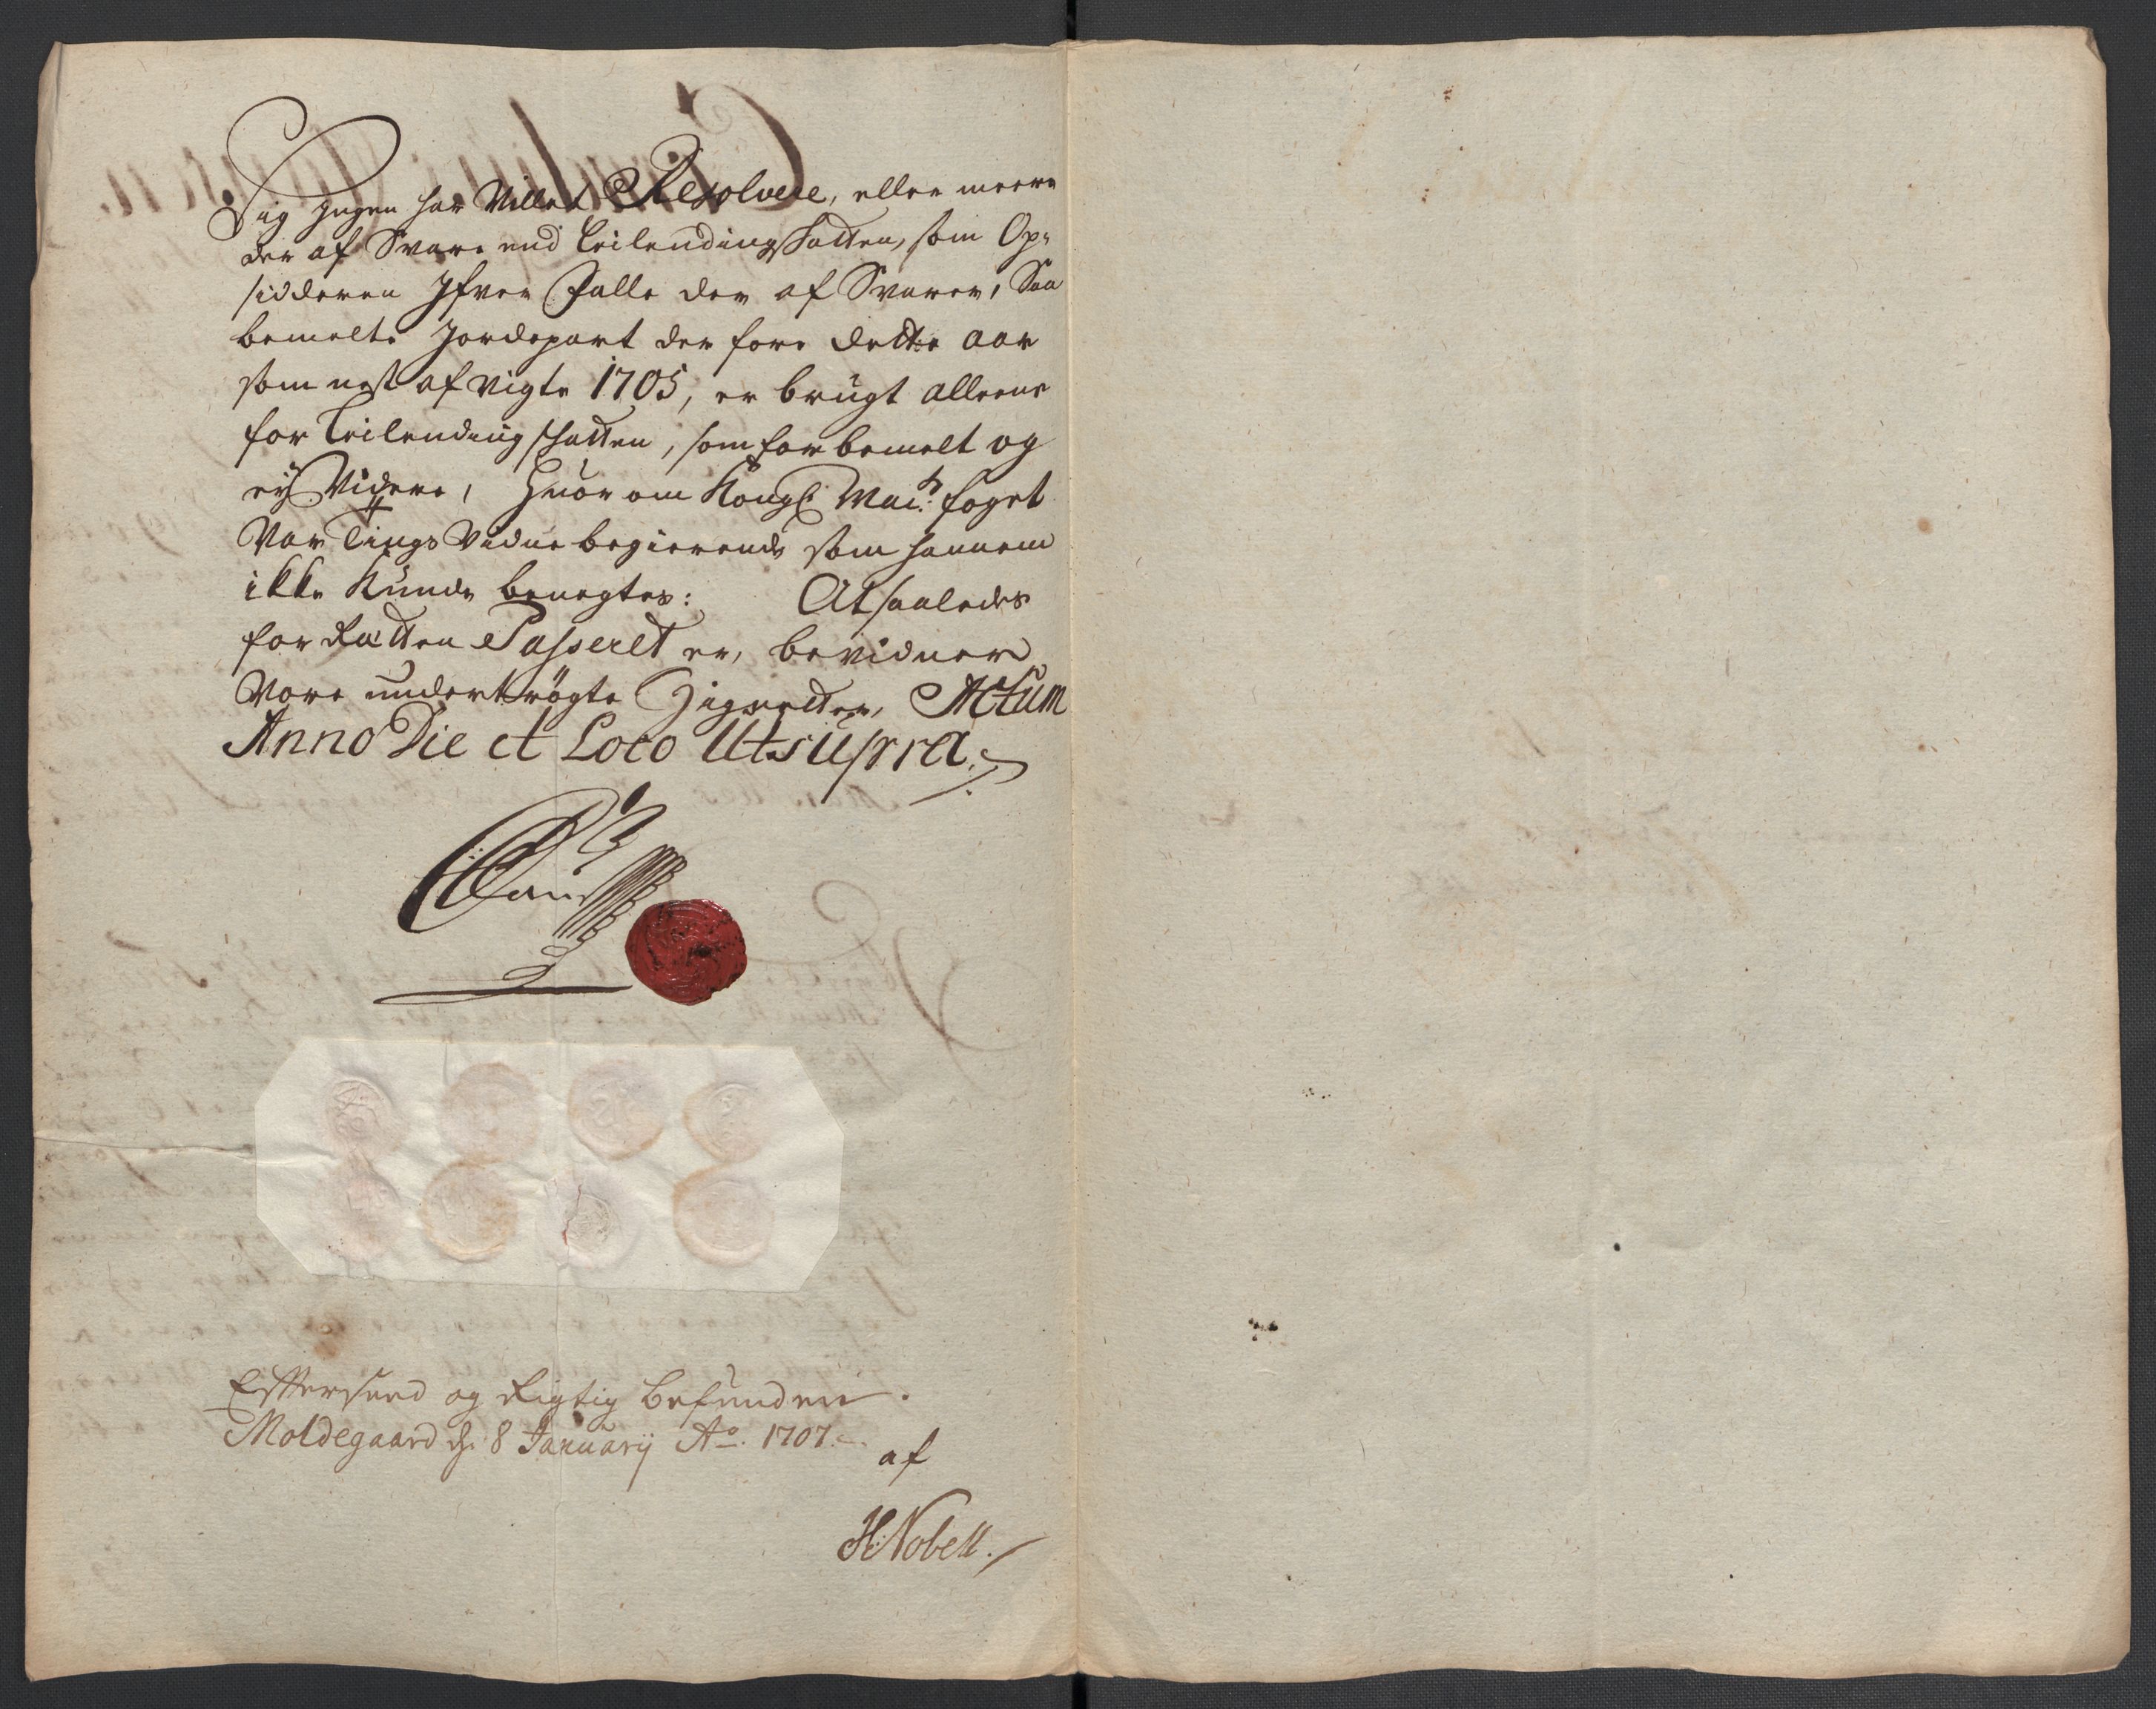 Sig Jngen har Villet Resolvere, eller meere
der af Svare end Leilendingskatten, som Op-
sidderen Jfver Falle der af Svarer, Saa
bemelte Jordepart der fore dette aar
som nest afvigte 1705, er brugt alleene
for Leilendingskatten, som forbemelt og
eÿ Videre, Huorom Kongl: Mai:ts foget
Var Tings Vidne begierende som hannem
ikke Kunde benegtes: At saaledes
for Retten Passeret er, bevidner
Vore undertrögte Zigneter, Actum
Anno Die et Loco Utsupra.
Efterseed og Rigtig befunden.
Moldegaard d. 8 Januarij Ao. 1707.
af
H: Nobell.